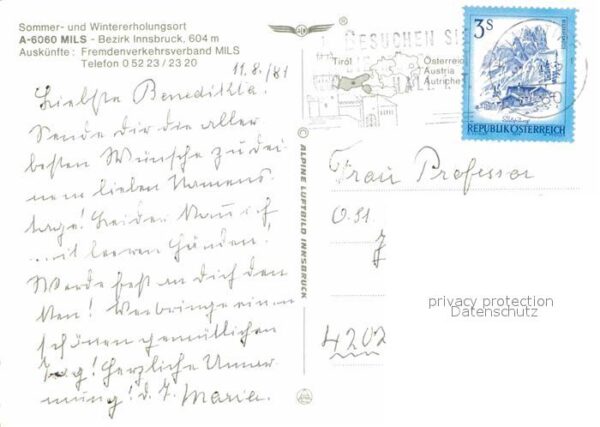 Sommer- und Wintererholungsort
A-6060 MILS - Bezirk Innsbruck, 604 m
Auskünfte : Fremdenverkehrsverband MILS
Telefon 0 52 23 / 23 20
11.8./81
Liebste Benedikta!
Sende dir die aller
besten Wünsche zu dei
nem lieben Namens
tage! Leider kann ich
...it leeren Händen!
Werde fest an dich den
ken! Verbringe einen
schönen gemütlichen
Tag! Herzliche Umar
mung! d. J. Maria.
ALPINE LUFTBILD INNSBRUCK
®
BESUCHEN SI
Tirol
Österreich
Austria
Autriche
3S
REPUBLIK ÖSTERREICH
Frau Professor
4202
privacy protection
Datenschutz